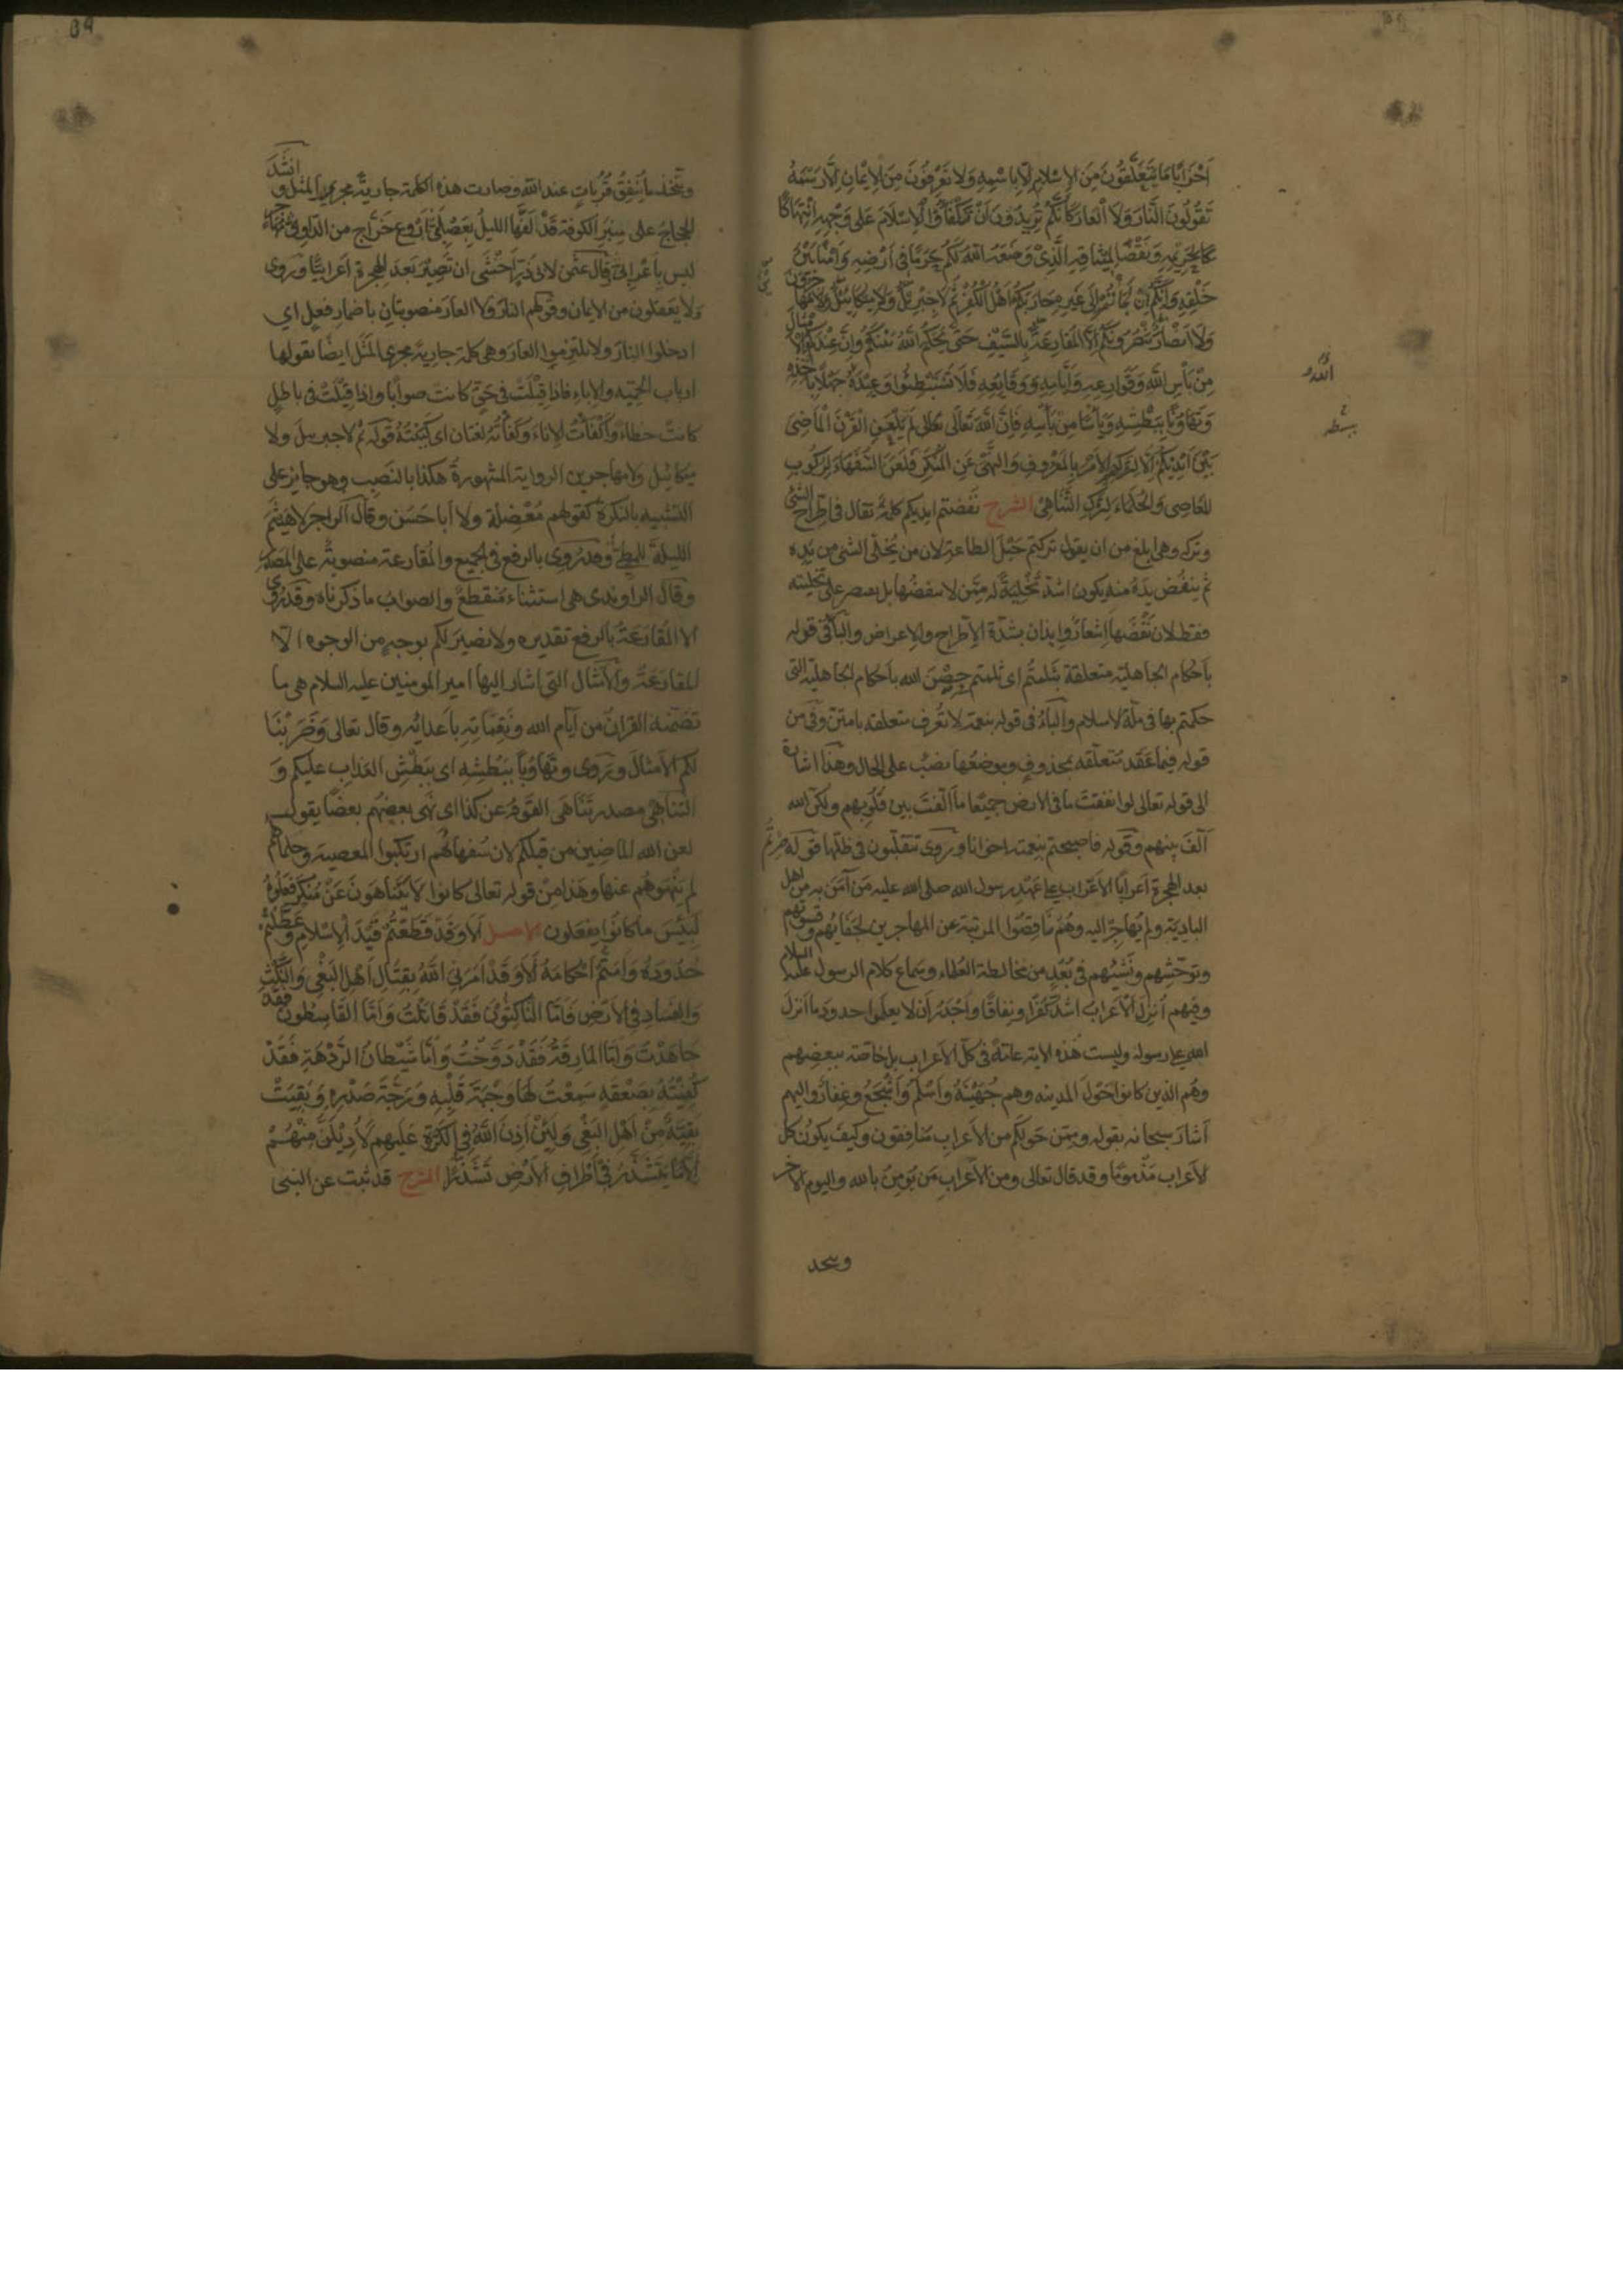 اَحْزَابًا مَا يَتَعَلَّقُونَ مِنَ الاِسْلامِ اِلّا بِاسْمِهِ وَلا تَعْرِفُونَ مِنَ الاِيْمَانِ اِلَّا رَسْمَهُ
تَقُولُونَ النَّارَ وَلاَ الْعَارَ كَاَنَّكُمْ تُرِيدُونَ اَنْ تُكْفِئُوا الْاِسْلَامَ عَلى وَجْهِهِ انْتِهَاكًا
لِحَرِيْمِهِ وَنَقْضًا لِمِيْثَاقِهِ الَّذِيْ وَضَعَهُ اللهُ لَكُمْ حَرَمًا فِي اَرْضِهِ وَاَمْنًا بَيْنَ
خَلْقِهِ وَاِنَّكُمْ اِنْ لَجَأْتُمْ اِلَى غَيْرِهِ حَارَبَكُمْ اَهْلُ الْكُفْرِ ثُمَّ لَا جِبْرَئِيْلَ وَلَا مِيْكَائِيْلَ وَلَا مُهَاجِرُونَ
وَلَا اَنْصَارَ يَنْصُرُونَكُمْ اِلَّا الْمُقَارَعَةَ بِالسَّيْفِ حَتَّى يَحْكُمَ اللهُ بَيْنَكُمْ وَاِنَّ عِنْدَكُمُ الْاَمْثَالَ
مِنْ بَأْسِ اللهِ وَقَوَارِعِهِ وَاَيَّامِهِ وَوَقَائِعِهِ فَلَا تَسْتَبْطِئُوا وَعِيْدَهُ جَهْلًا بِاَخْذِهِ
وَتَهَاوُنًا بِبَطْشِهِ وَيَأْسًا مِنْ بَأْسِهِ فَاِنَّ اللهَ تَعَالَى لَمْ يَلْعَنِ الْقَرْنَ الْمَاضِيَ
بَيْنَ اَيْدِيْكُمْ اِلَّا لِتَرْكِهِمُ الْاَمْرَ بِالْمَعْرُوفِ وَالنَّهْيَ عَنِ الْمُنْكَرِ فَلَعَنَ السُّفَهَاءَ لِرُكُوبِ
المَعَاصِي وَالْحُكَمَاءَ لِتَرْكِ التَّنَاهِيْ الشرح نَفَضتم ايديكم كلمةٌ تقال في اطّراح الشئ
وتركه وهي ابلغ من ان يقول تركتم حَبْلَ الطاعة لان من يُخَلّي الشئ من يَدِه
ثم ينفُض يَدَهُ منه يكون اشدّ تَخْلِيةً له مِمَّن لا ينفضُها بل يقتصر على تخليته
فقط لان نَفْضَها اِشعارٌ وايذان بشدّة الاِطّراح والاعراض والباءُ في قوله
باَحكام الجاهلية متعلقة بثلمتُم اى ثلمتم حِصْنَ الله باَحكام الجاهليّة التى
حكمتم بها في ملّة الاسلام والباءُ في قوله بنعمةٍ لا تُعرف متعلقه بامتنّ وفي من
قوله فيما عَقَد مُتعلّقه بمحذوفٍ وموضعُها نصبٌ على الحال وهذا اشارة
الى قوله تعالى لو انفقتَ ما في الارض جميعًا ما اَلّفتَ بين قُلُوبِهم ولكنّ الله
اَلّفَ بينهم وقوله فاصبحتم بنعمته اخوانا ويروى تتقلّبون في ظلها قوله صِرتُم
بعد الهجرة اَعرابًا الاَعراب على عَهْدِ رسول الله صلى الله عليه مَن آمَنَ به من اهل
البادِيَة ولم يُهاجِرْ اليه وهُمْ نَاقِصُوا المرتبة عن المهاجرين لجفَائِهم وقسوتهم
وتوحّشهم ونَشْئِهم في بُعْدٍ من مخالطة العُلماء وسماع كلام الرسول عليه السلام
وفيهم اُنزِلَ الاَعرابُ اشدّ كُفرًا ونِفاقًا واَجْدَرُ اَن لا يعلَموا حدودَ ما اَنزلَ
الله على رسوله وليست هذه الاية عامّةً في كلّ الاَعراب بل خاصّة ببعضهم
وهُم الذين كانوا حَوْلَ المدينه وهم جُهَيْنَةُ واَسْلَمُ واَشْجَعُ وغِفارٌ واليهم
اَشارَ سبحانه بقوله وممّن حَولَكم من الاَعراب مُنافقون وكيفَ يكونُ كل
الاَعراب مَذْمومًا وقد قال تعالى ومن الاَعرابِ مَن يُومِنُ بالله واليوم الاخر
ويتّخذ
ويتّخذ ما يُنفِقُ قُرُباتٍ عند الله وصارت هذه الكلمة جاريةً مجرى المثل وانشَدَ
الحجّاجُ على مِنبَرِ الكوفة قَدْ لَفَّها الليلُ بِعَصْلَبيٍّ اَرْوَعَ خَرّاجٍ من الدّاويّ مُهَاجرٍ
ليس باَعرابيّ وقال عثمن لابي ذرّ اَخْشَى ان تَصِيْرَ بَعدَ الهجرة اَعرابيًّا ويُروى
ولا يعقلون من الايمان وقولهم النارَ ولا العارَ منصوبتانِ باضمارِ فعلٍ اي
ادخلوا النارَ ولا تلتزموا العارَ وهي كلمة جارية مجرى المَثَل ايضًا يقولها
ارباب الحَمِيّة والاِباءِ فاذا قِيْلَتْ في حَقٍّ كانت صوابًا واذا قِيْلَتْ في باطلٍ
كانتْ خطاءً وَاَكْفأْتُ الاِناءَ وكفأْتُهُ لغتان اى كَبَبْتُهُ قوله ثم لا جبريلَ ولا
ميكائيلَ ولا مهاجرين الرواية المشهورةُ هكذا بالنَصبِ وهو جايز على
التشبيه بالنكرة كقولهم مُعْضِلَة ولا اَبا حَسَن وقال الراجز لا هَيْثَمَ
الليلةَ للمطيّ وقد رُوي بالرفع في الجميع والمُقارعة منصوبةٌ على المصدر
وقال الراوندى هي استثناء مُنقطعٌ والصوابُ ما ذكرناه وقد رُوي
الا المُقارَعَةُ بالرفع تقديره ولا نصيرَ لكم بوجهٍ من الوجوه الا
المقارَعَةُ والاَمْثال التي اشار اليها امير المومنين عليه السلام هي ما
تضمّنهُ القرانُ من اَيام الله ونَقِمَاتِهِ باَعدائه وقال تعالى وَضَرَبْنَا
لكم الاَمثالَ ويُروى وتهاوُنًا ببَطْشِهِ اى بَبَطْشِ العَذابِ عليكم وَ
التَّنَاهِيْ مصدر تَنَاهَى القَوْمُ عن كذا اى نَهى بعضُهُم بعضًا يقول
لعن الله الماضِينَ من قبلكم لان سُفهاءَهُم ارتكبوا المعصيةَ وحُلماءَهُم
لم يَنْهَوهُم عنها وهَذا مِنْ قوله تعالى كانوا لا يَتَناهَونَ عَنْ مُنكَرٍ فَعَلُوهُ
لَبِئْسَ ما كانوا يفعَلون الاصل اَلَا وَقَدْ قَطَعْتُمْ قَيْدَ الْاِسْلامِ وَعَطَّلْتُمْ
حُدُودَهُ وَاَمَتُّمْ اَحْكَامَهُ اَلَا وَقَدْ اَمَرَنِيَ اللهُ بِقِتَالِ اَهْلِ البَغْيِ وَالنَّكْثِ
وَالفَسَادِ فِي الاَرْضِ فَاَمَّا النَّاكِثُونَ فَقَدْ قَاتَلْتُ وَاَمَّا القَاسِطُونَ فَقَدْ
جَاهَدْتُ وَاَمَّا المَارِقَةُ فَقَدْ دَوَّخْتُ وَاَمَّا شَيْطَانُ الرَّدْهَةِ فَقَدْ
كُفِيْتُهُ بِصَعْقَةٍ سَمِعْتُ لَهَا وَجْبَةَ قَلْبِهِ وَرَجَّةَ صَدْرِهِ وَبَقِيَتْ
بَقِيَّةٌ مِنْ اَهْلِ البَغْيِ وَلَئِنْ اَذِنَ اللهُ فِي الْكَرَّةِ عَلَيهِمْ لَاُدِيْلَنَّ مِنْهُمْ
اِلَّا مَا يَتَشَذَّرُ فِي اَطْرَافِ الاَرْضِ تَشَذُّرًا الشرح قد ثبت عن النبى